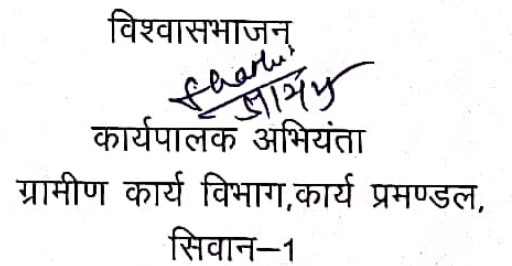 विश्वासभाजन
कार्यपालक अभियंता
ग्रामीण कार्य विभाग,कार्य प्रमण्डल,
सिवान–1